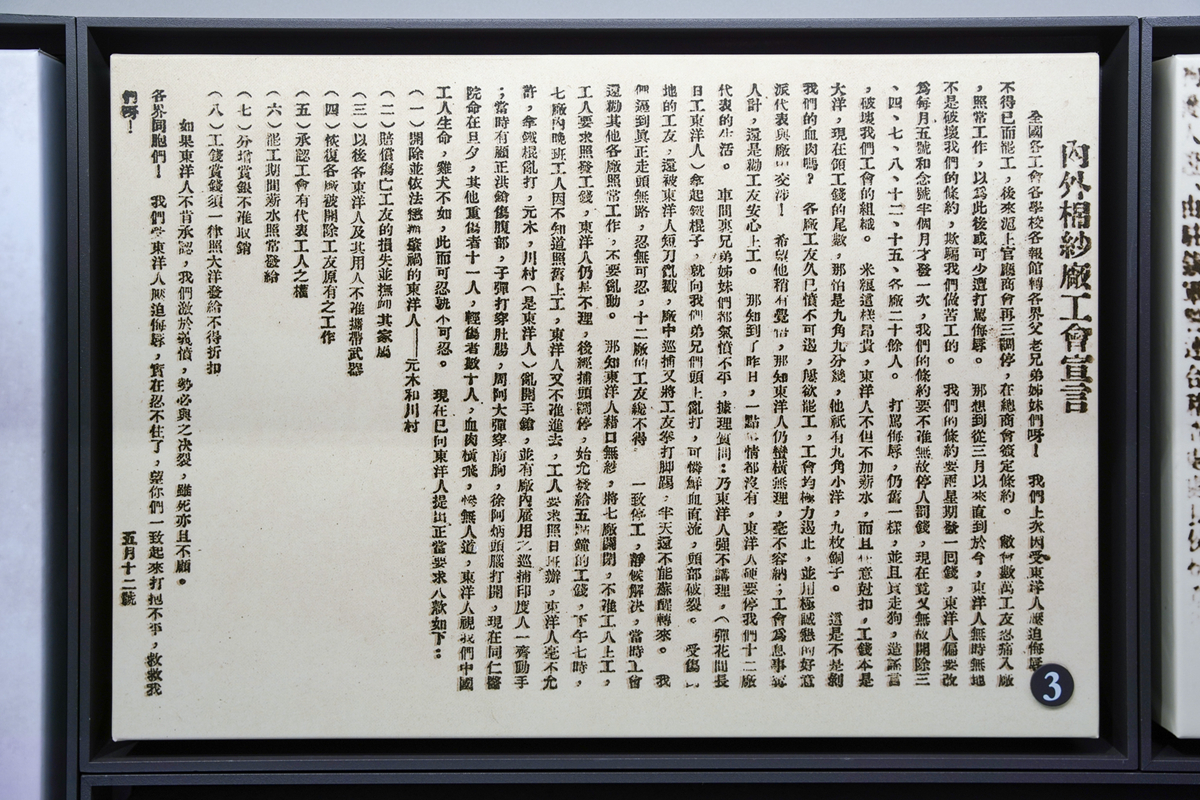 內外棉紗廠工會宣言
全國各工會各學校各報館轉各界父老兄弟姊妹們呀！　我們上次因受東洋人壓迫侮辱
不得已而罷工，後來滬上官廳商會再三調停，在總商會簽定條約。　敝廠數萬工友忍痛入廠
，照常工作，以為此後或可少遭打罵侮辱。　那想到從三月以來直到於今，東洋人無時無地
不是破壞我們的條約，欺騙我們做苦工的。　我們的條約要兩星期發一回錢，東洋人偏要改
為每月五號和念號半個月才發一次，我們的條約要不准無故停人罰錢，現在竟又無故開除三
、四、七、八、十二、十五、各廠二十餘人。　打罵侮辱，仍舊一樣，並且買走狗，造謠言
，破壞我們工會的組織。　米糧這樣昂貴，東洋人不但不加薪水，而且任意尅扣，工錢本是
大洋，現在領工錢的尾數，那怕是九角九分幾，他祇有九角小洋，九枚銅子。　這是不是剝
我們的血肉嗎？　各廠工友久已憤不可遏，屢欲罷工，工會均極力遏止，並用極誠懇的好意
派代表與廠口交涉！　希望他稍有覺悟，那知東洋人仍蠻橫無理，毫不容納；工會為息事寧
人計，還是勸工友安心上工。　那知到了昨日，一點事情都沒有，東洋人硬要停我們十二廠
代表的生活。　車間裏兄弟姊妹們都氣憤不平，據理質問：乃東洋人強不講理，（彈花間長
日工東洋人）拿起鐵棍子，就向我們弟兄們頭上亂打，可憐鮮血直流，頭部破裂。　受傷
地的工友，還被東洋人短刀亂戳，廠中巡捕又將工友拳打脚踢，半天還不能蘇醒轉來。　我
們逼到真正走頭無路，忍無可忍，十二廠的工友纔不得　一致停工，靜候解決，當時工會
還勸其他各廠照常工作，不要亂動。　那知東洋人藉口無紗，將七廠關閉，不准工人上工，
工人要求照發工錢，東洋人仍是不理，後經捕頭調停，始允發給五點鐘的工錢，下午七時，
七廠內晚班工人因不知道照舊上工，東洋人又不准進去，工人要求照日班辦，東洋人毫不允
許，拿鐵棍亂打，元木，川村（是東洋人）亂開手鎗，並有廠內雇用之巡捕印度人一齊動手
；當時有顧正洪鎗傷腹部，子彈打穿肚腸，周阿大彈穿前胸，徐阿炳頭腦打開，現在同仁醫
院命在旦夕，其他重傷者十一人，輕傷者數十人，血肉橫飛，慘無人道，東洋人視我們中國
工人生命，雞犬不如，此而可忍孰不可忍。　現在已向東洋人提出正當要求八款如下：
（一）開除並依法懲辦肇禍的東洋人——元木和川村
（二）賠償傷亡工友的損失並撫卹其家屬
（三）以後各東洋人及其用人不准攜帶武器
（四）恢復各廠被開除工友原有之工作
（五）承認工會有代表工人之權
（六）罷工期間薪水照常發給
（七）分增賞銀不准取銷
（八）工錢賞錢須一律照大洋發給不得折扣
如果東洋人不肯承認，我們激於義憤，勢必與之決裂，雖死亦且不顧。
各界同胞們！　我們受東洋人壓迫侮辱，實在忍不住了，望你們一致起來打抱不平，救救我
們呀！
五月十二號
3